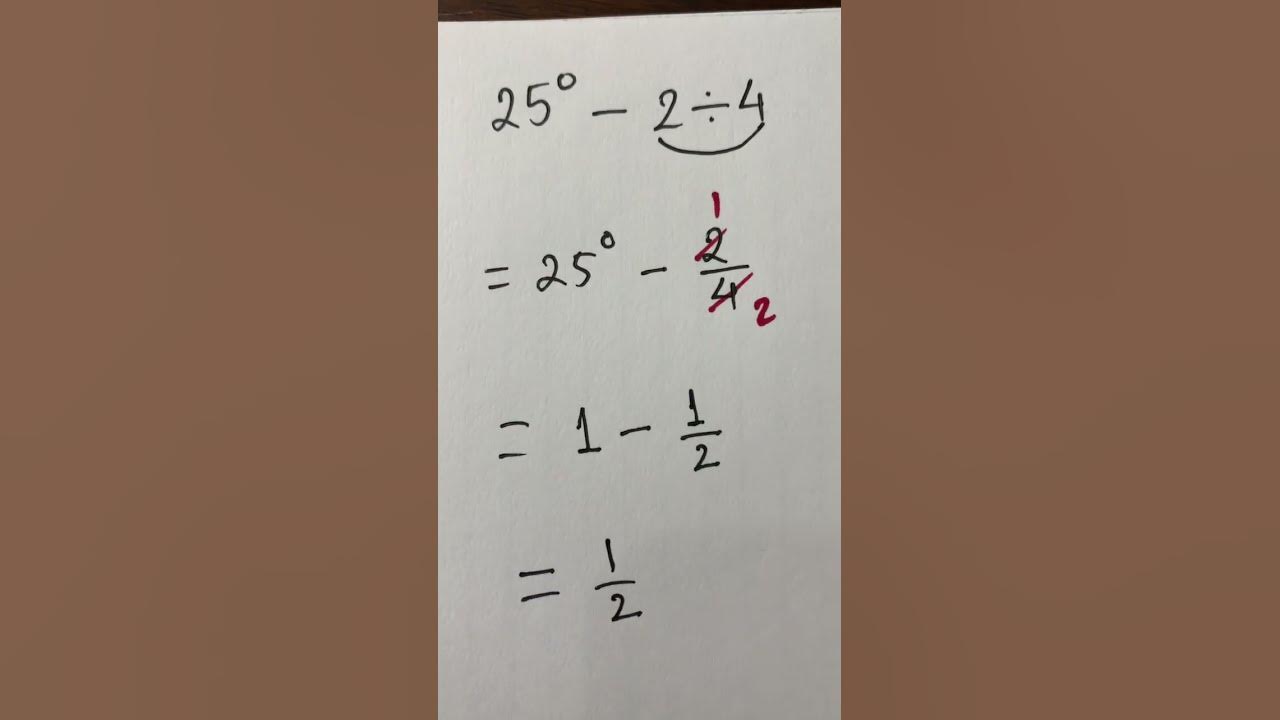 25⁰ − 2 ÷ 4
= 25⁰ − 2/4 1 2
= 1 − 1/2
= 1/2